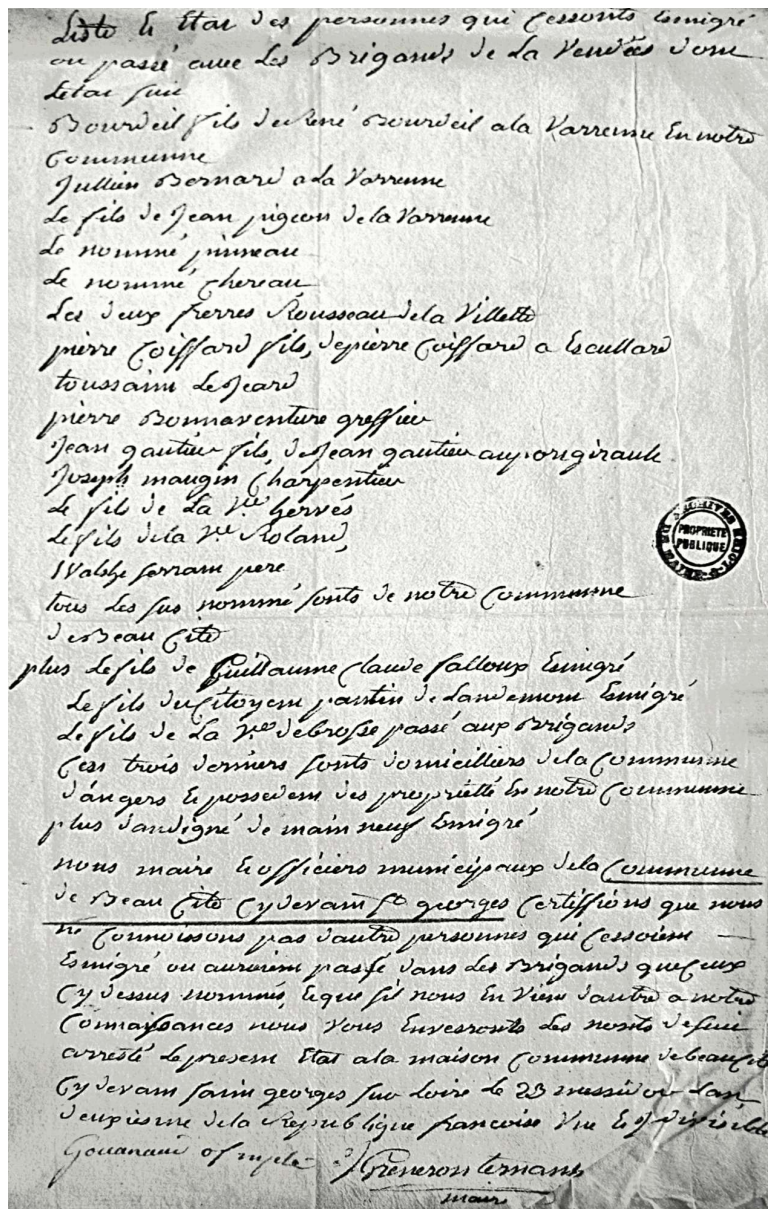 Liste & Etat des personnes qui Cessonts Esmigré
ou passé avec Les Brigands de La Vendés dont
Letat suit
Bourdeil fils de René Bourdeil a la Varrenne En notre
Communne
Jullien Bernard a da Varrenne
Le fils de Jean pigeon de la Varrenne
Le nommé pinneau
Le nommé Chereau
Les deux frerres Rousseau de la Villette
pierre Coiffard fils, de pierre Coiffard a Escullard
toussaint Lejeard
pierre Bonnaventure greffier
Jean gautier fils, de Jean gautier au pongirault
Joseph maugin Charpentier
Le fils de La Vve hervés
Le fils de la Vve Roland,
Walshe serrant pere
tous Les sus nommé sonts de notre Communne
de Beau Cité
plus Le fils de Guillaume Claude falloux Esmigré
Le fils du Citoyem pantin de Landemont Esmigré
Le fils de La Vve debrosse passé aux Brigands
Ces trois derniers sonts domicilliers de la Communne
d'angers & possedent des proprietté En notre Communne
plus dandigné de mainneuf Esmigré
nous maire & officiers municipaux de la Communne
de Beau Cité Cy devant St georges Certiffions que nous
ne Connoissons pas dautre personnes qui Cessoient
Esmigré ou auroient passé dans Les Brigands que Ceux
Cy dessus nommés, & que sil nous En Vient dautre a notre
Connaissances nous Vous Enverronts Les noms de suit
arresté Le present Etat a la maison Communne de beau Cité
Cy devant saint georges sur Loire Le 23 messidor Lan
deuxiesme de la Republique francoise Une & Indivisible
Gouanaud of
maire
ARCHIVES
DE MAINE-&-LOIRE
PROPRIÉTÉ
PUBLIQUE